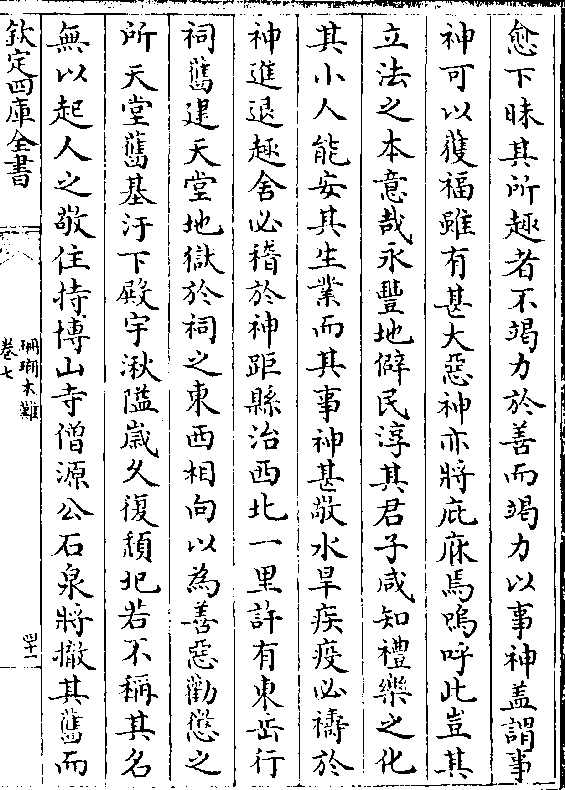 愈下昧其所趣者不竭力於善而竭力以事神盖謂事
神可以獲福雖有甚大惡神亦將庇庥焉嗚呼此豈其
立法之本意哉永豐地僻民淳其君子咸知禮樂之化
其小人能安其生業而其事神甚敬水旱疾疫必禱於
神進退趣舍必稽於神距縣治西北一里許有東岳行
祠舊建天堂地獄於祠之東西相向以為善惡勸懲之
所天堂舊基汙下殿宇湫隘嵗久復頽圯若不稱其名
無以起人之敬住持博山寺僧源公石泉將撤其舊而
欽定四庫全書
珊瑚木難
卷七
四十一